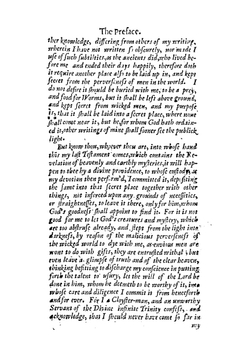 The Preface.
ther knowledge, differing from others of my writing,
wherein I have not written so obscurely, nor made
use of such subtilties, as the ancients did, who lived before
me and ended their days happily, therefore doth
it require another place also to be laid up in, and kept
secret from the perverseness of men in the world. I
do not desire it should be buried with me, to be a prey,
and food for Worms, but it shall be left above ground,
and kept secret from wicked men, and my purpose
is, that it shall be laid into a secret place, where none
shall come at it, but he, for whom God hath ordained
it is, other writings of mine shall sooner see the publick
light.
But know thou, whoever thou art, into whose hand
this my last Testament comes, which contains the Revelations
of heavenly and earthly mysteries, it will happen
to thee by a divine providence, to whose custody, at
my devotion then perform'd, I committed it, depositing
the same into that secret place together with other
things, not inforced upon any grounds of necessities,
or straightnesses, to leave it there, only for him, whom
God's goodness shall appoint to find it. For it is not
good for me to let God's creatures and mystery, which
are too abstruse already, and, steps from the light into
darkness, by reason of the malicious perverseness of
the wicked world to dye with me, as envious men are
want to do with gifts, they are entrusted withal
even leave a glimpse of truth and of the clear heaven,
thinking besitting to discharge my conscience in putting
forth the talent to usury, let the will of the Lord be
done in him, whom he deemeth to be worthy of it, into
whose care and diligence I commit it from henceforth
and for ever. For I a Cloyster-man, and an unworthy
Servant of the Divine infinite Trinity confess, and
acknowledge, that I should never have come so far in